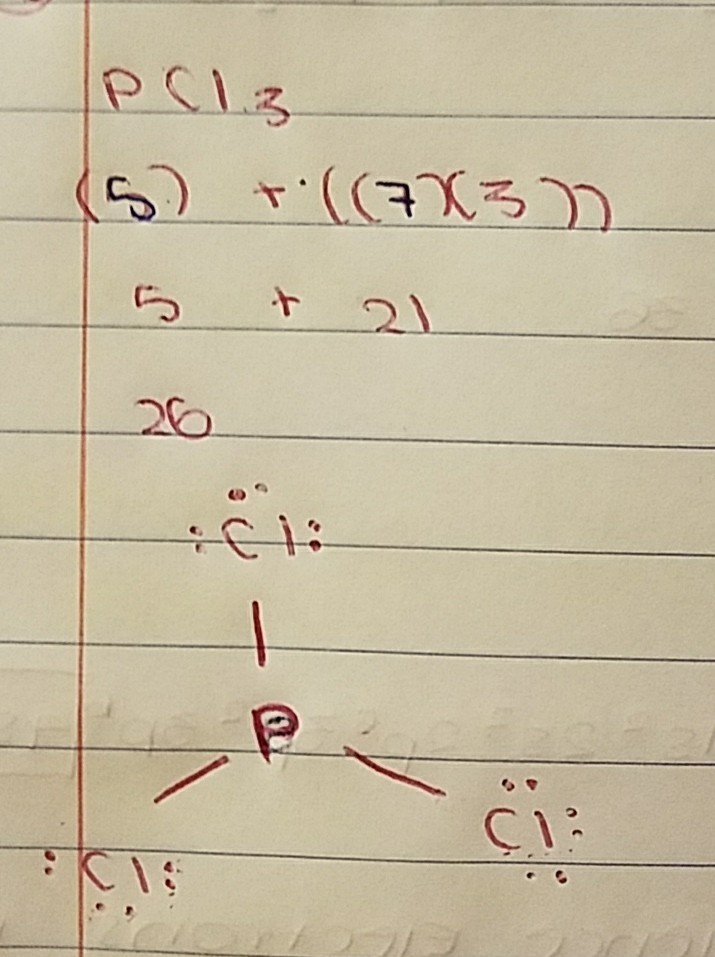 PCl3
(5) + ((7)(3))
5 + 21
26
:Cl:
P
:Cl:
Cl: